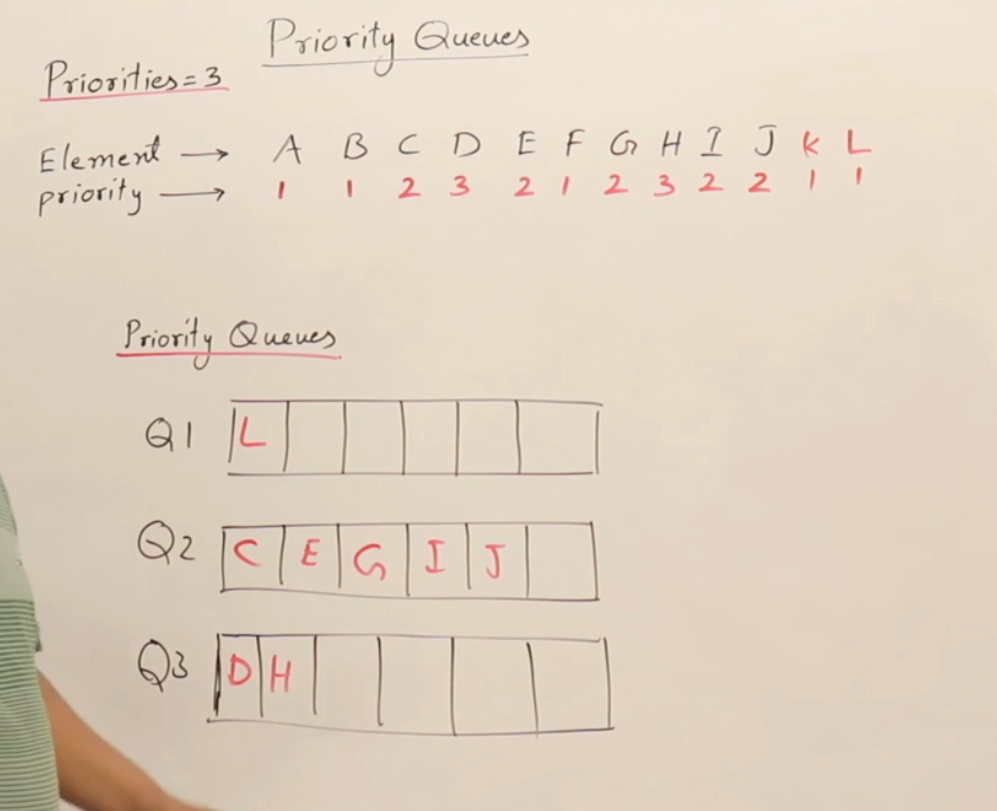 Priority Queues
Priorities=3
Element → A B C D E F G H I J K L
priority → 1 1 2 3 2 1 2 3 2 2 1 1
Priority Queues
Q1 L
Q2 C E G I J
Q3 D H